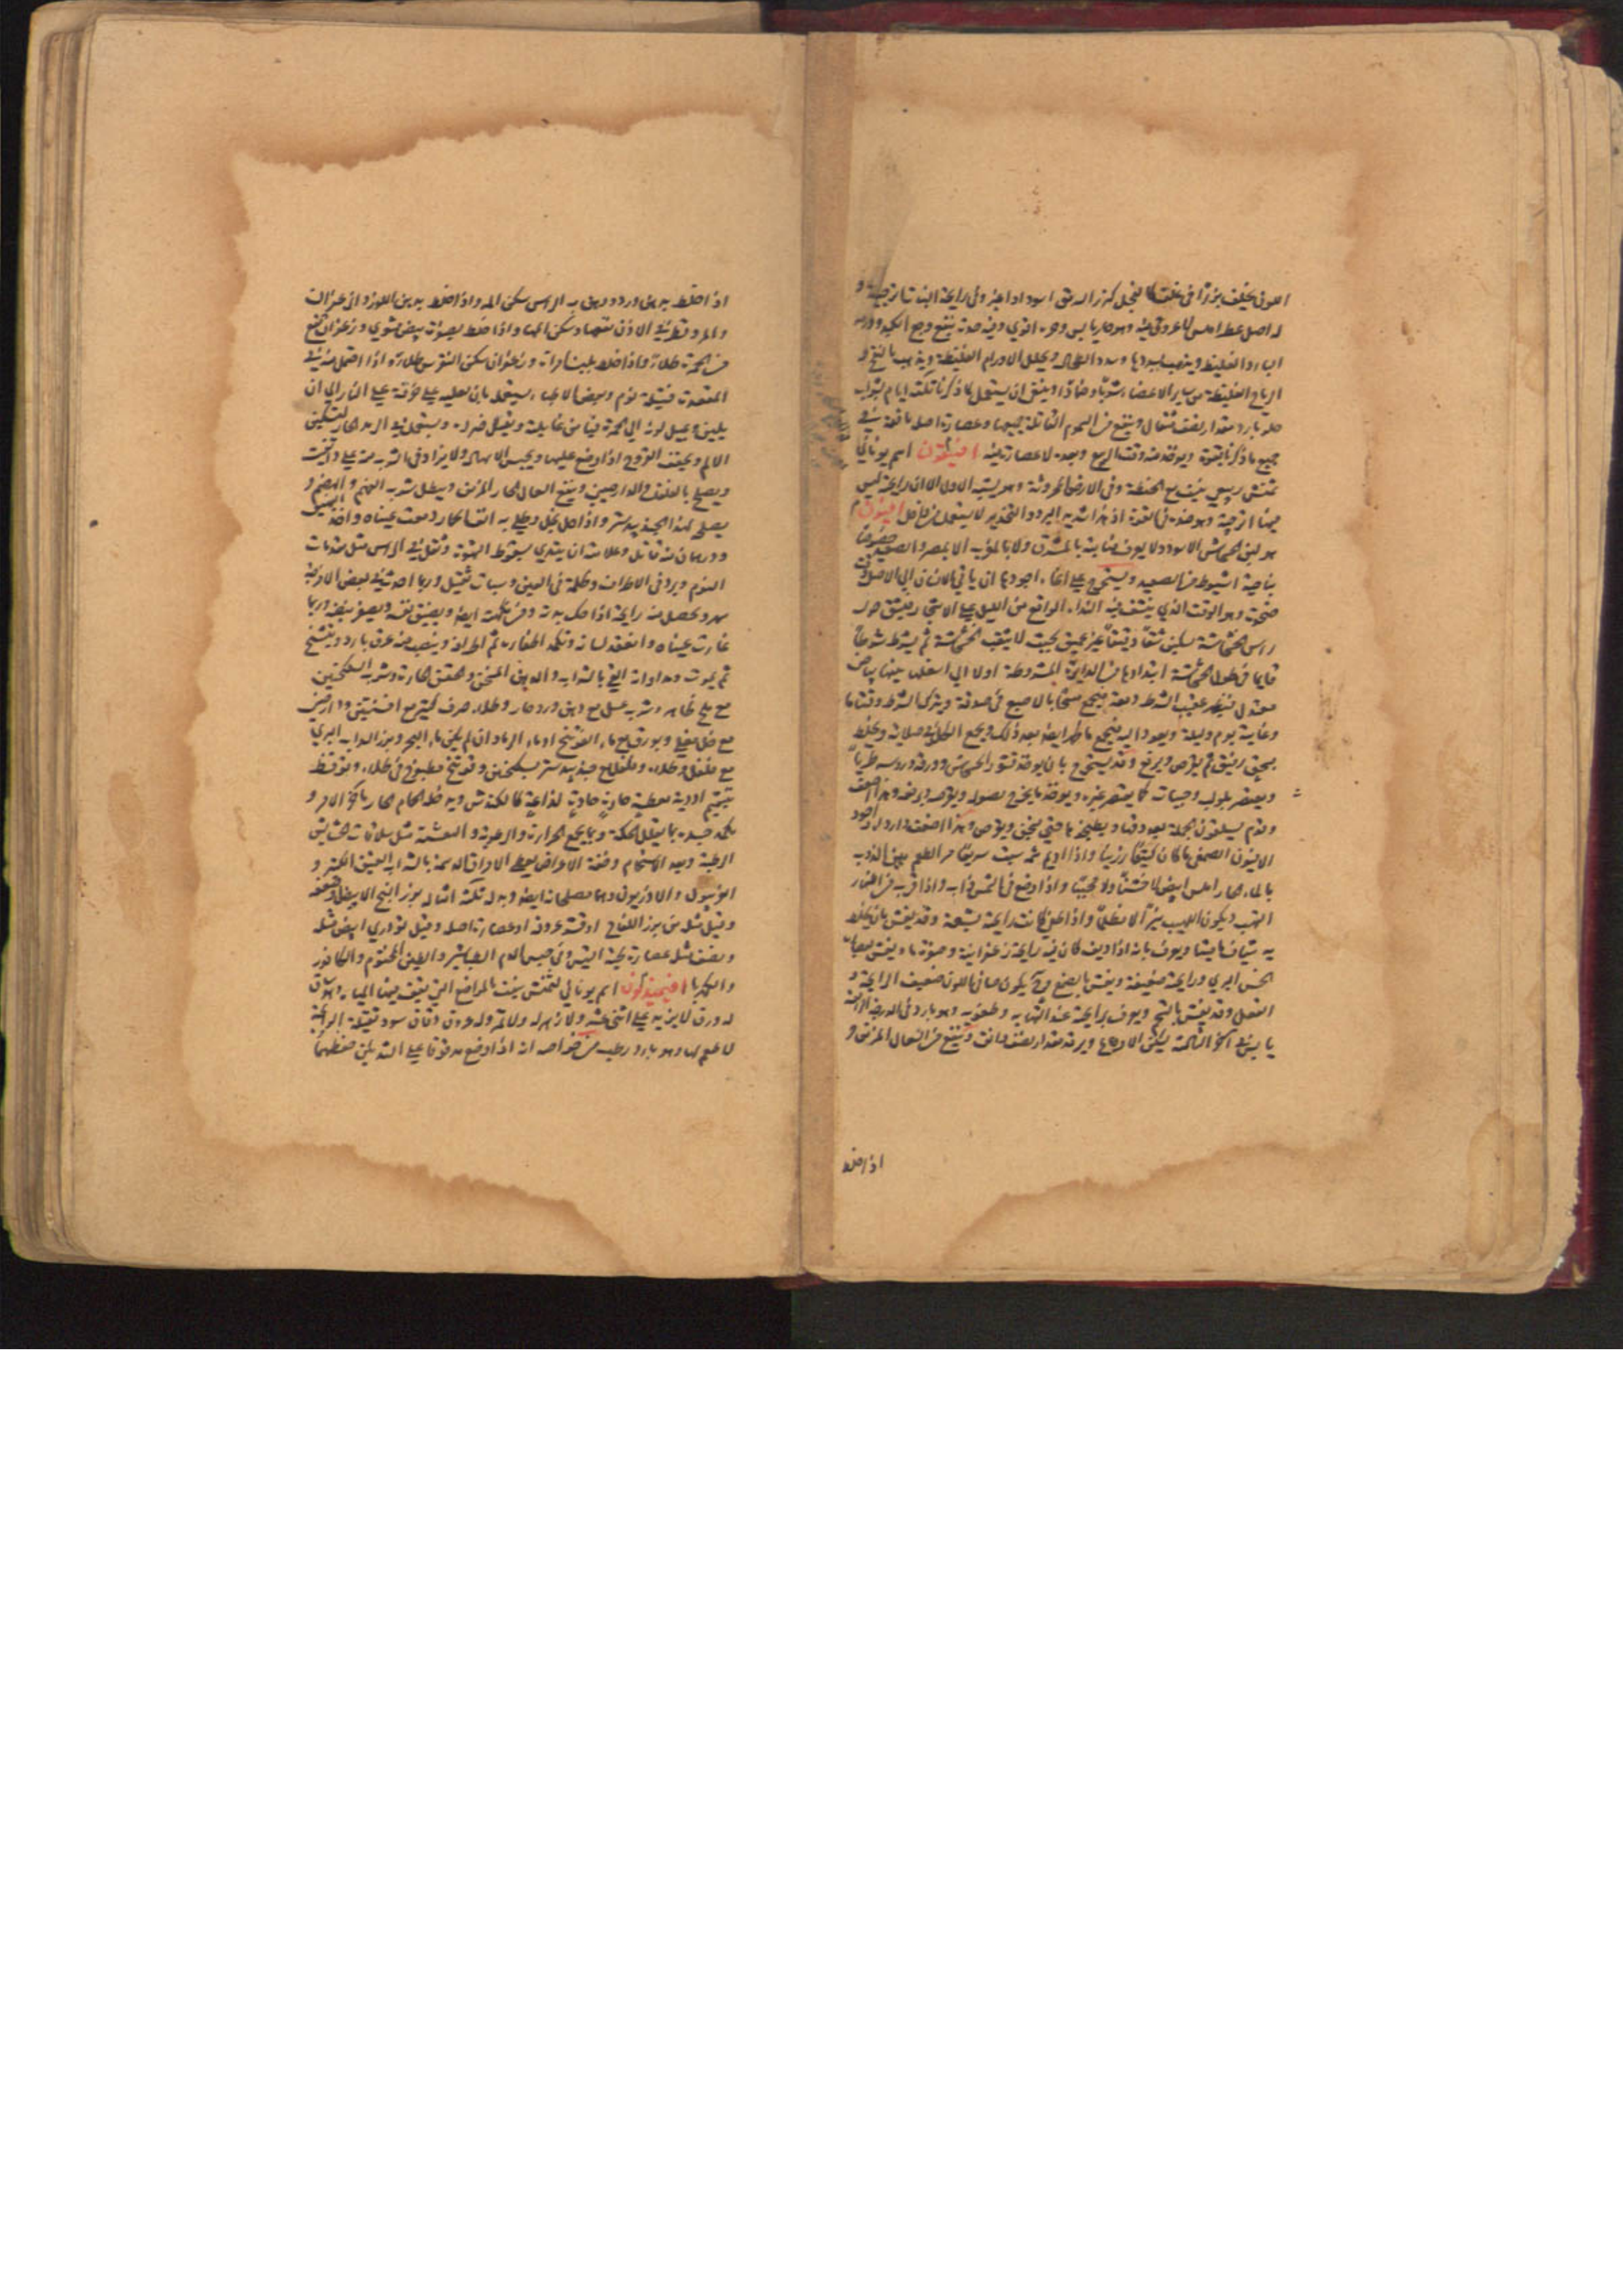 اللوني يخلف بزرًا في غلف كالفجل كزر الدبق اسود او اغبر وفي رايحة النبت ترجية و
له اصل عطر املس لا عروق فيه وهو حار يابس وحره اقوي وفيه حدة ينفع وجع الكبد ودرره
البارد الغليظ ويذهب ببردها وسدد الطحال ويحلل الاورام الغليظة ويذهب بالنفخ و
الرياح الغليظة من ساير الاعضاء شربًا وضمادًا وينبغي ان يستعمل كما ذكرنا ثلثة ايام بشراب
حلو بارد مقدار نصف مثقال وينفع من السموم القاتلة جميعها وعصارة اصله نافعة في
جميع ما ذكرنا بقوة ويوخذ منه وقت الربيع وبعده لا عصارة فيه افيقون اسم يوناني
تمنش ربيعي ينبت مع الحنطة وفي الارض المحروثة وهو يشبه الاول الا ان رايحة ليس
فيها اترجية وهو ضده في القوة اذ هذا شديد البرد والتخدير لا يستعمل من داخل افيون
هو لبن الخشخاش الاسود ولا يعرف نباته بالمشرق ولا بالمغرب الا بمصر والصعيد خصوصًا
بناحية اسيوط من الصعيد ويستخرج علي انحاء اجودها ان ياتي الانسان الي الاصل وقت
ضحوة وهو الوقت الذي ينشف فيه النداء الواقع من الليل علي الاشجار فيشق حول
راس الخشخاشة بسكين شقًا دقيقًا غير عميق بحيث لا يثقب الخشخاشة ثم يشرط شرطًا
قايما في طول الخشخاشة ابتداوها من الدايرة المشروطة اولا الي اسفل بينها بياض
معتدل فيظهر عقيب الشرط دمعة فيجمع مسحًا بالاصبع في صدفة ويترك الشرط وقتا ما
وغايته يوم وليلة ويعود اليه فيجمع ما ظهر ايضا بعد ذلك ويجمع الكل في صلاية ويخلط
بسحق رفيق ثم يقرص ويرفع وقد يستخرج بان يوخذ قشور الخشخاش وورقه وروسه طريًا
ويعصر بلولب وحبات كما يعصر غيره ويوخذ ما يخرج بصوله ويقرص ويرفع وهذا اضعف
وقوم يسلقون الجملة بعد دقها ويطبخ ماؤها حتي يثخن ويقرص وهذا اضعف واردا واجود
الافيون الصمغي ما كان كثيفًا رزينًا واذا اديم شمه سبت سريعًا مر الطعم هين الذوب
بالماء الحار املس ابيض لا خشنًا ولا محببًا واذا وضع في الشمس ذاب واذا قرب من النار
التهب ويكون اللهيب نيرًا لا مظلمًا واذا طفي كانت رايحة بشعة وقد يغش بان يخلط
به شياف ماميثا ويعرف بانه اذا اديف كان فيه رايحة زعفرانية وصفرة ما ويغش بعصارة
الخس البري ورايحته ضعيفة ويغش بالصمغ وح يكون صافي اللون ضعيف الرايحة و
الفعل وقد يغش بالشحم ويعرف برايحة عند التهابه وطعمه وهو بارد في الدرجة الرابعة
يابس في آخر الثالثة يسكن الاوجاع ويرقد مقدار نصف دانق وينفع من السعال المزمن و
اذا خلط
اذا خلط بدهن ورد ودهن به الراس سكن المه واذا خلط بدهن اللوز والزعفران
والمر وقطر في الاذن نفعها وسكن المها واذا خلط بصفرة بيض مشوي وزعفران نفع
من الحمرة طلاءً واذا خلط بلبن امراة وزعفران سكن النقرس طلاءً واذا احتمل منه في
المقعدة فتيلة نوم وبعض الاطباء يستعمله بان يغليه علي خزفة علي النار الي ان
يلين ويميل لونه الي الحمرة فيامن غايلته ويقل ضرره ويستعمل في الرمد الحار لتسكين
الالم ويجفف القروح اذا وضع عليها ويحبس الاسهال ولا يزاد في الشربة منه علي دانقين
ويصلح بالفلفل والدارصيني وينفع السعال الحار المزمن ويبطل شربه الفهم والهضم و
يصلحه لهذا الجندبيدستر واذا حل بخل وطلي به
ودرهمان منه قاتل وعلامته ان يبتدي بسقوط القوة وثقل في الراس مثل مقدمات
النوم وبرد في الاطراف وظلمة في العين وسبات ثقيل وربما احدث في بعض الامزجة
سهر ويحصل منه رايحة اذا حك بدنه ومن نكهته ايضا ويضيق نفسه ويصغر نبضه وربما
غارت عيناه وانعقد لسانه وتكمد اظفاره ثم اطرافه وينصب منه عرق بارد ويتشنج
ثم يموت ومداواته القي بالشراب والدهن المسخن والحقن الحارة وشرب السكنجبين
مع ملح ظاهر وشرب عسل مع دهن ورد حار وطلاء صرف كثير مع افسنتين ودارصيني
مع خل مغلي وبورق مع ماء الفوتنج او ماء الرماد ان لم يكن ماء البحر وبزر السذاب البري
مع فلفل وطلاء وفلفل مع جندبيدستر بسكنجبين وفوتنج مطبوخ في طلاء ويوقظ
بتشميم ادوية معطسة حارة حادة لذاعة كالكندش ويدخله الحمام الحار باخرة الامر و
يكمد جسده بما يقلل الحكة وبما يجمع الحرارة والرطوبة والدهنية مثل سلاقات الحشايش
الرطبة وبعد الاستحمام وخفة الاعراض يعطي الامراق الدسمة بالشراب العتيق الكثير و
افربيون والاذريون وهما مصلحانه ايضا وبدله ثلثة امثاله بزر البنج الابيض وضعفه
وقيل مثله من بزر اللفاح او قشر عروقه او عصارة اصله وقيل لؤلؤي ابيض مثله
ونصف مثله عصارة لحية التيس وفي حبس الدم الطباشير والطين المختوم والكافور
والكهربا افيميذيون اسم يوناني لتمنش ينبت بالمواضع التي يقف فيها المياه وله ساق
له ورق لا يزيد علي اثني عشر ولا زهر له ولا ثمر وله عروق دقاق سود ثقيلة الرايحة
لا طعم لها وهو بارد رطب من خواصه انه اذا وضع مدقوقا علي الثديين حفظهما